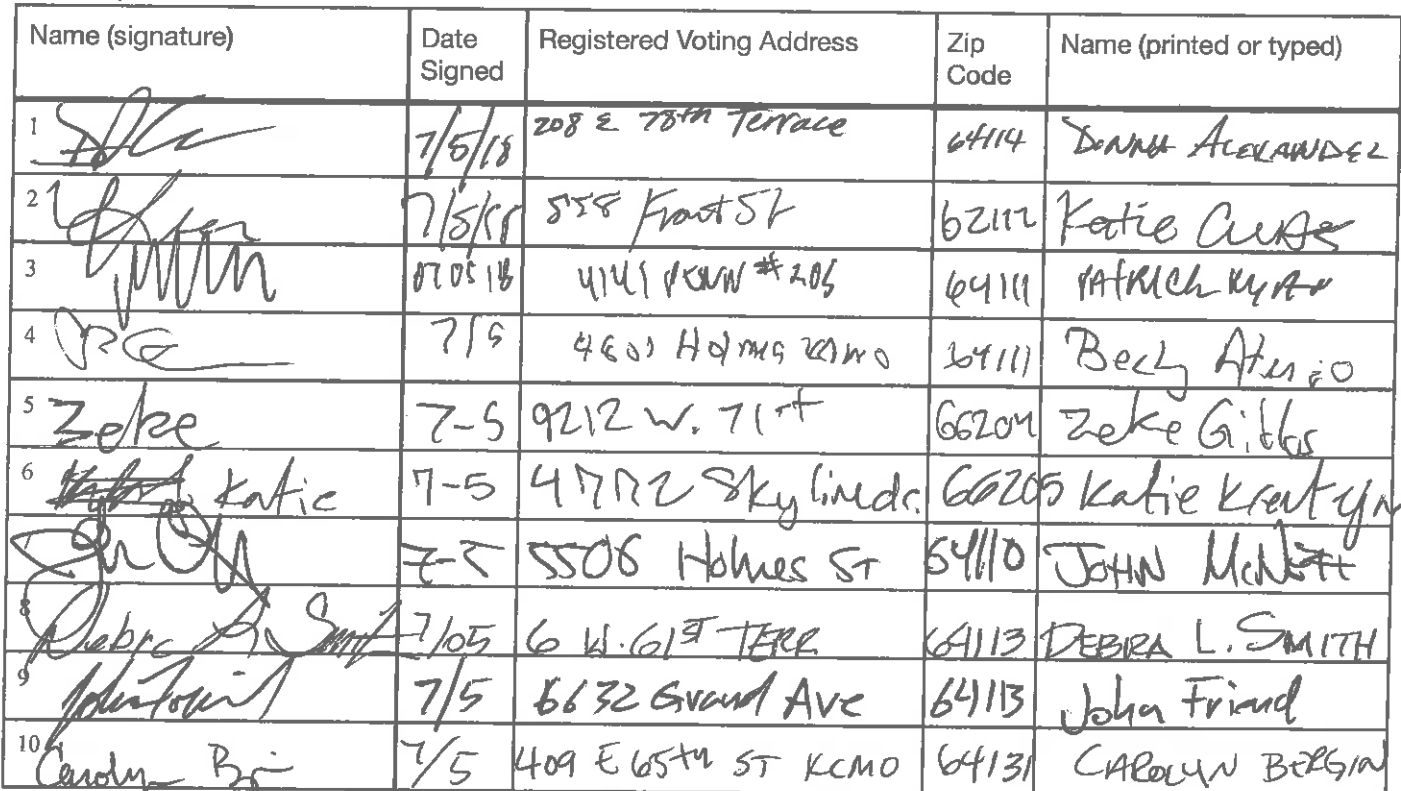 Name (signature) Date Signed Registered Voting Address Zip Code Name (printed or typed)
1 7/5/18 208 E 78th Terrace 64114 DONNA ALEXANDER
2 7/5/18 Front St Katie
3 070518 4141 PENN #206 64111 PATRICK
4 7/5 Becky
5 Zeke 7-5 9212 W. 71st 66204 Zeke Gibbs
6 Katie 7-5 4772 Skyline dr. 66205 Katie
7-5 5506 Holmes ST 64110 JOHN
8 Debra L Smith 7/05 6 W. 61ST TERR 64113 DEBRA L. SMITH
9 John Friend 7/5 6632 Grand Ave 64113 John Friend
10 Carolyn 7/5 409 E 65th ST KCMO 64131 CAROLYN BERGIN